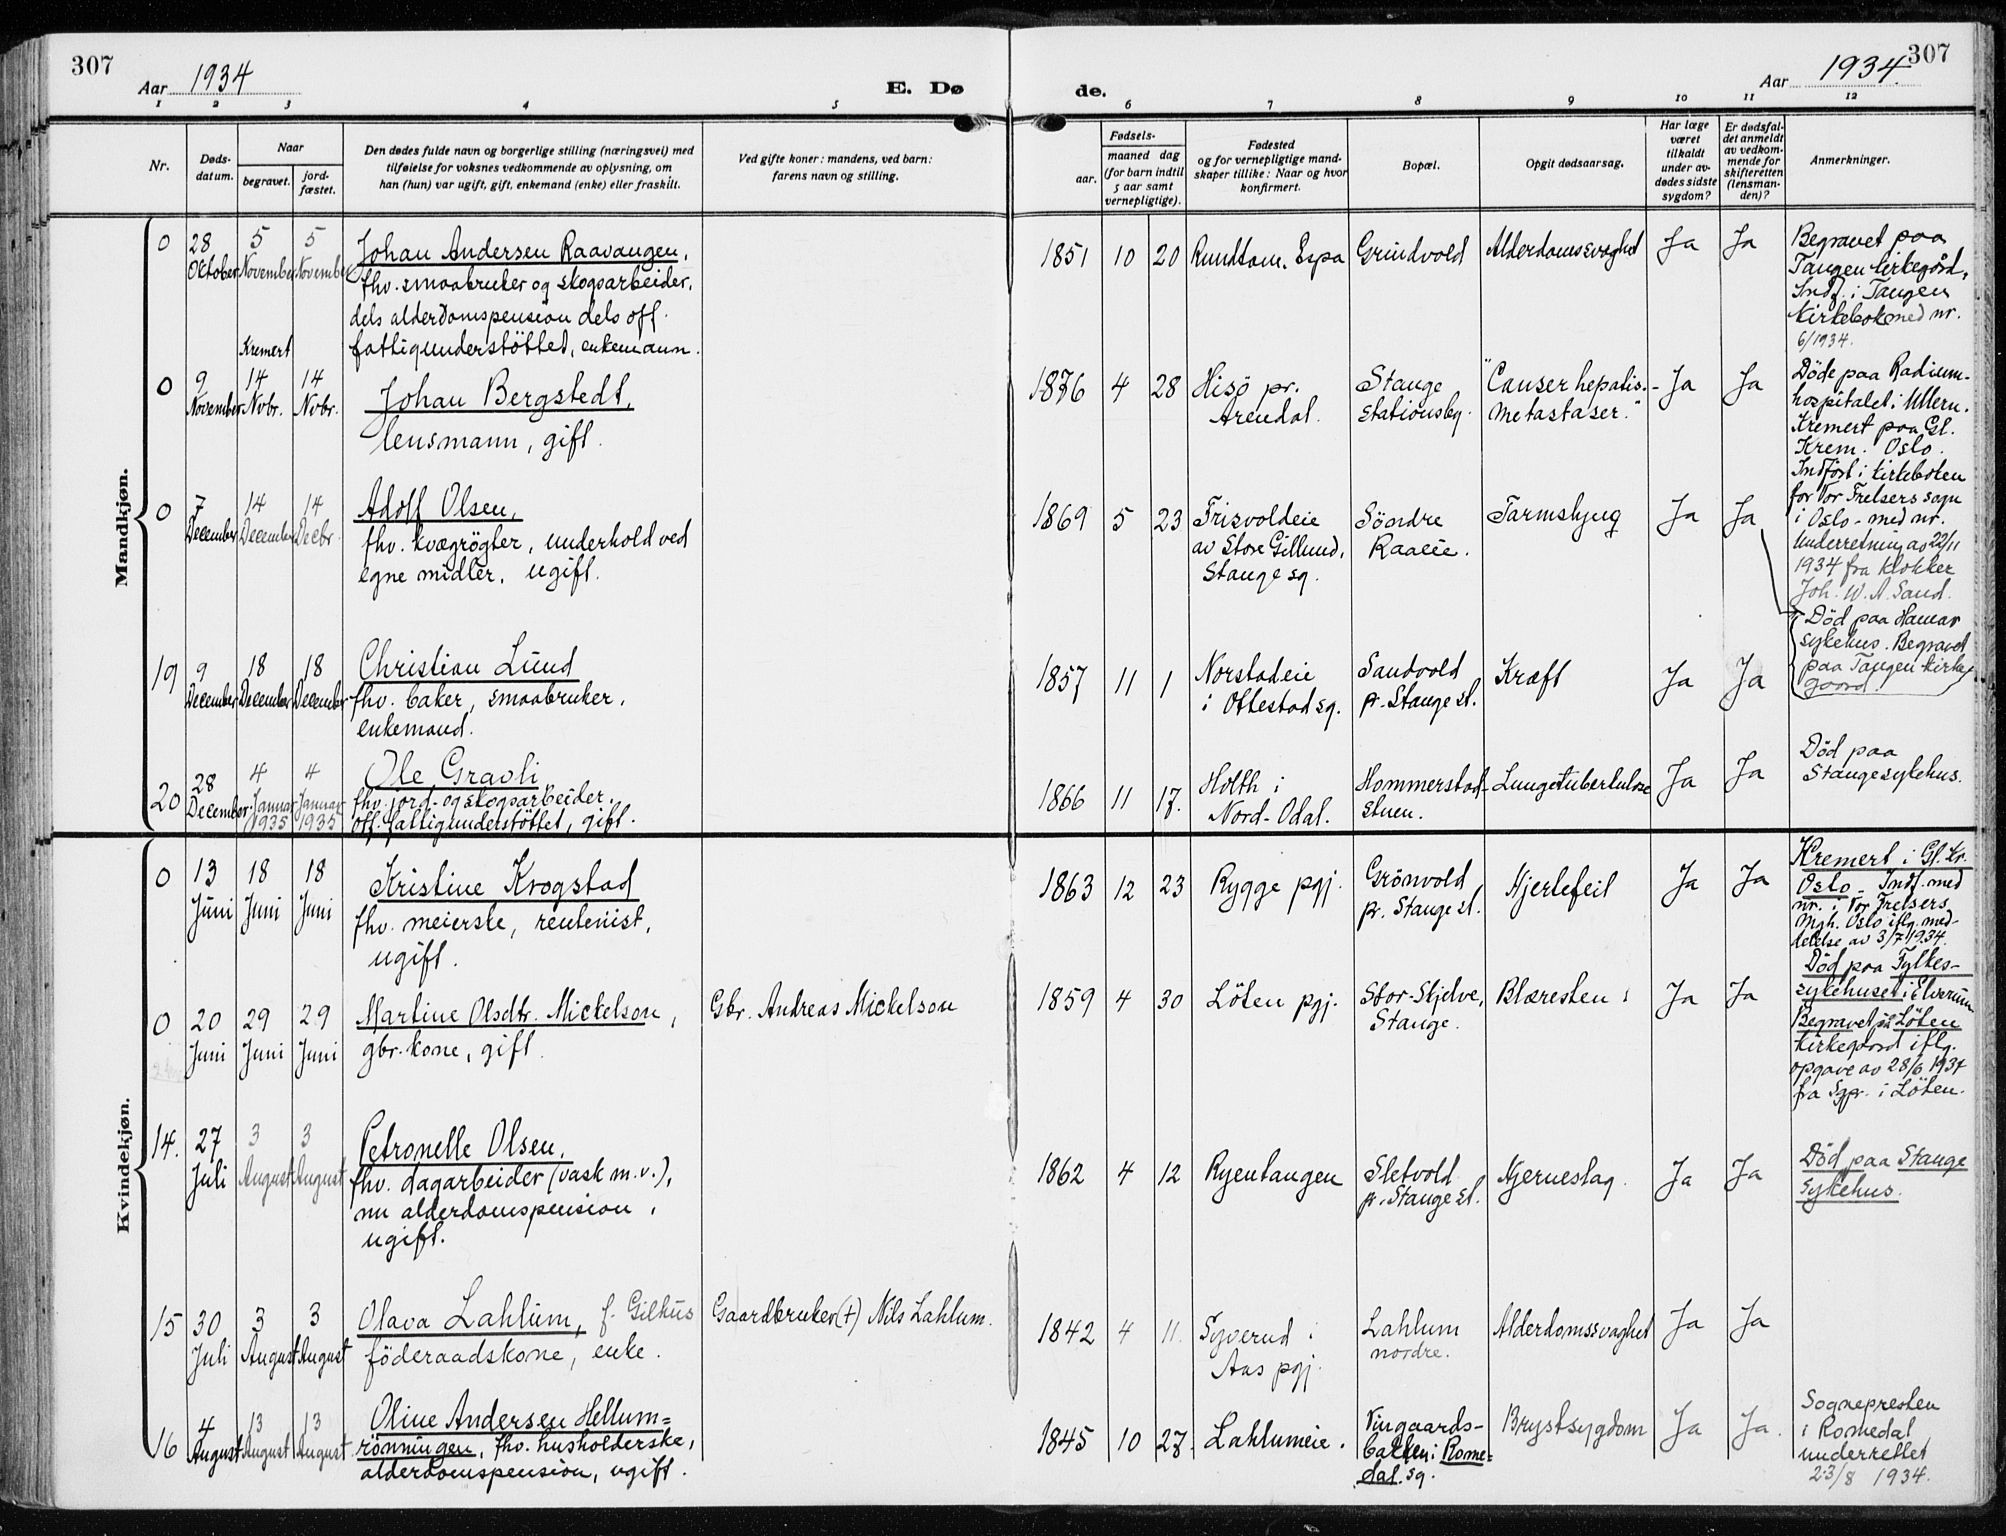 307
Aar 1934
E. Dø
de.
Aar 1934.
307
1 2 3 4 5 6 7 8 9 10 11 12
Nr.
Døds-
datum.
Naar
begravet.
jord-
fæstet.
Den dødes fulde navn og borgerlige stilling (næringsvei) med
tilføielse for voksnes vedkommende av oplysning, om
han (hun) var ugift, gift, enkemand (enke) eller fraskilt.
Ved gifte koner: mandens, ved barn:
farens navn og stilling.
Fødsels-
aar.
maaned dag
(for barn indtil
5 aar samt
vernepligtige).
Fødested
og for vernepligtige mand-
skaper tillike: Naar og hvor
konfirmert.
Bopæl.
Opgit dødsaarsag.
Har læge
været
tilkaldt
under av-
dødes sidste
sygdom?
Er dødsfal-
det anmeldt
av vedkom-
mende for
skifteretten
(lensman-
den)?
Anmerkninger.
Mandkjøn.
0
28
Oktober
5
November
5
November
Johan Andersen Raavangen,
fhv. smaabruker og skogsarbeider,
dels alderdomspension dels off.
fattigunderstöttet, enkemann.
1851 10 20
Rundtom. Espa
Grindvold
Alderdomssvaghet
Ja
Ja
Begravet paa
Tangen kirkegård,
Indf. i Tangen
kirkebok med nr.
6/1934.
0
9
November
Kremert
14
Nvbr.
14
Nvbr.
Johan Bergstedt,
lensmann, gift.
1876 4 28
Hisö pr.
Arendal.
Stange
stationsby.
"Canser hepatis.-
metastaser."
Ja
Ja
Döde paa Radium-
hospitalet i Ullern.
Kremert paa Gl.
Krem. Oslo.
Indfört i kirkeboken
for Vor Frelsers sogn
i Oslo - med nr.
Underretning av 22/11
1934 fra klokker
Joh. W. A. Sand.
0
7
December
14
December
14
Decbr.
Adolf Olsen,
fhv. kvægrögter, underhold ved
egne midler, ugift.
1869 5 23
Frisvoldeie
av Store Gillund,
Stange sg.
Söndre
Raaeie.
Tarmslyng
Ja
Ja
Död paa Hamar
sykehus. Begravet
paa Tangen kirke-
gaard.
19
9
December
18
December
18
December
Christian Lund
fhv. baker, smaabruker,
enkemand.
1857 11 1
Norstadeie
i Ottestad sg.
Sandvold
pr. Stange st.
Kræft
Ja
Ja
20
28
December
4
Januar
1935
4
Januar
1935
Ole Gravli
fhv. jord- og skogsarbeider.
off. fattigunderstöttet, gift.
1866 11 17.
Holth i
Nord-Odal.
Hommerstad-
stuen.
Lungetuberkulose
Ja
Ja
Död paa
Stangesykehus.
Kvindekjøn.
0
13
Juni
18
Juni
18
Juni
Kristine Krogstad
fhv. meierske, rentenist,
ugift.
1863 12 23
Rygge pgj.
Grönvold
pr. Stange st.
Hjertefeil
Ja
Ja
Kremert i Gl. Kr.
Oslo - Indf. med
nr. i Vor Frelsers
Mgh. Oslo iflg. med-
delelse av 3/7 1934.
0
20
Juni
29
Juni
29
Juni
Martine Olsdtr. Mickelson,
gbr. kone, gift.
Gbr. Andreas Mickelson
1859 4 30
Löten pgj.
Stor-Skjelve,
Stange.
Blæresten
Ja
Ja
Död paa Fylkes-
sykehuset i Elverum
Begravet på Löten
kirkegaard iflg.
opgave av 28/6 1934
fra Sgpr. i Löten.
14.
27
Juli
3
August
3
August
Petronelle Olsen,
fhv. dagarbeider (vask m.v.),
nu alderdomspension,
ugift.
1862 4 12
Ryentangen
Sletvold
pr. Stange st.
Hjerneslag.
Ja
Ja
Död paa Stange
sykehus.
15
30
Juli
3
August
3
August
Olava Lahlum, f. Gilhus
föderaadskone, enke.
Gaardbruker (+) Nils Lahlum.
1842 4 11.
Syverud i
Aas pgj.
Lahlum
nordre.
Alderdomssvaghet
Ja
Ja
16
4
August
13
August
13
August
Oline Andersen Hellum=
rönningen, fhv. husholderske,
alderdomspension, ugift.
1845 10 27.
Lahlumeie.
Vingaards-
bakken i Rome=
dal. sg.
Brystsygdom
Ja
Ja.
Sognepresten
i Romedal
underrettet
23/8 1934.